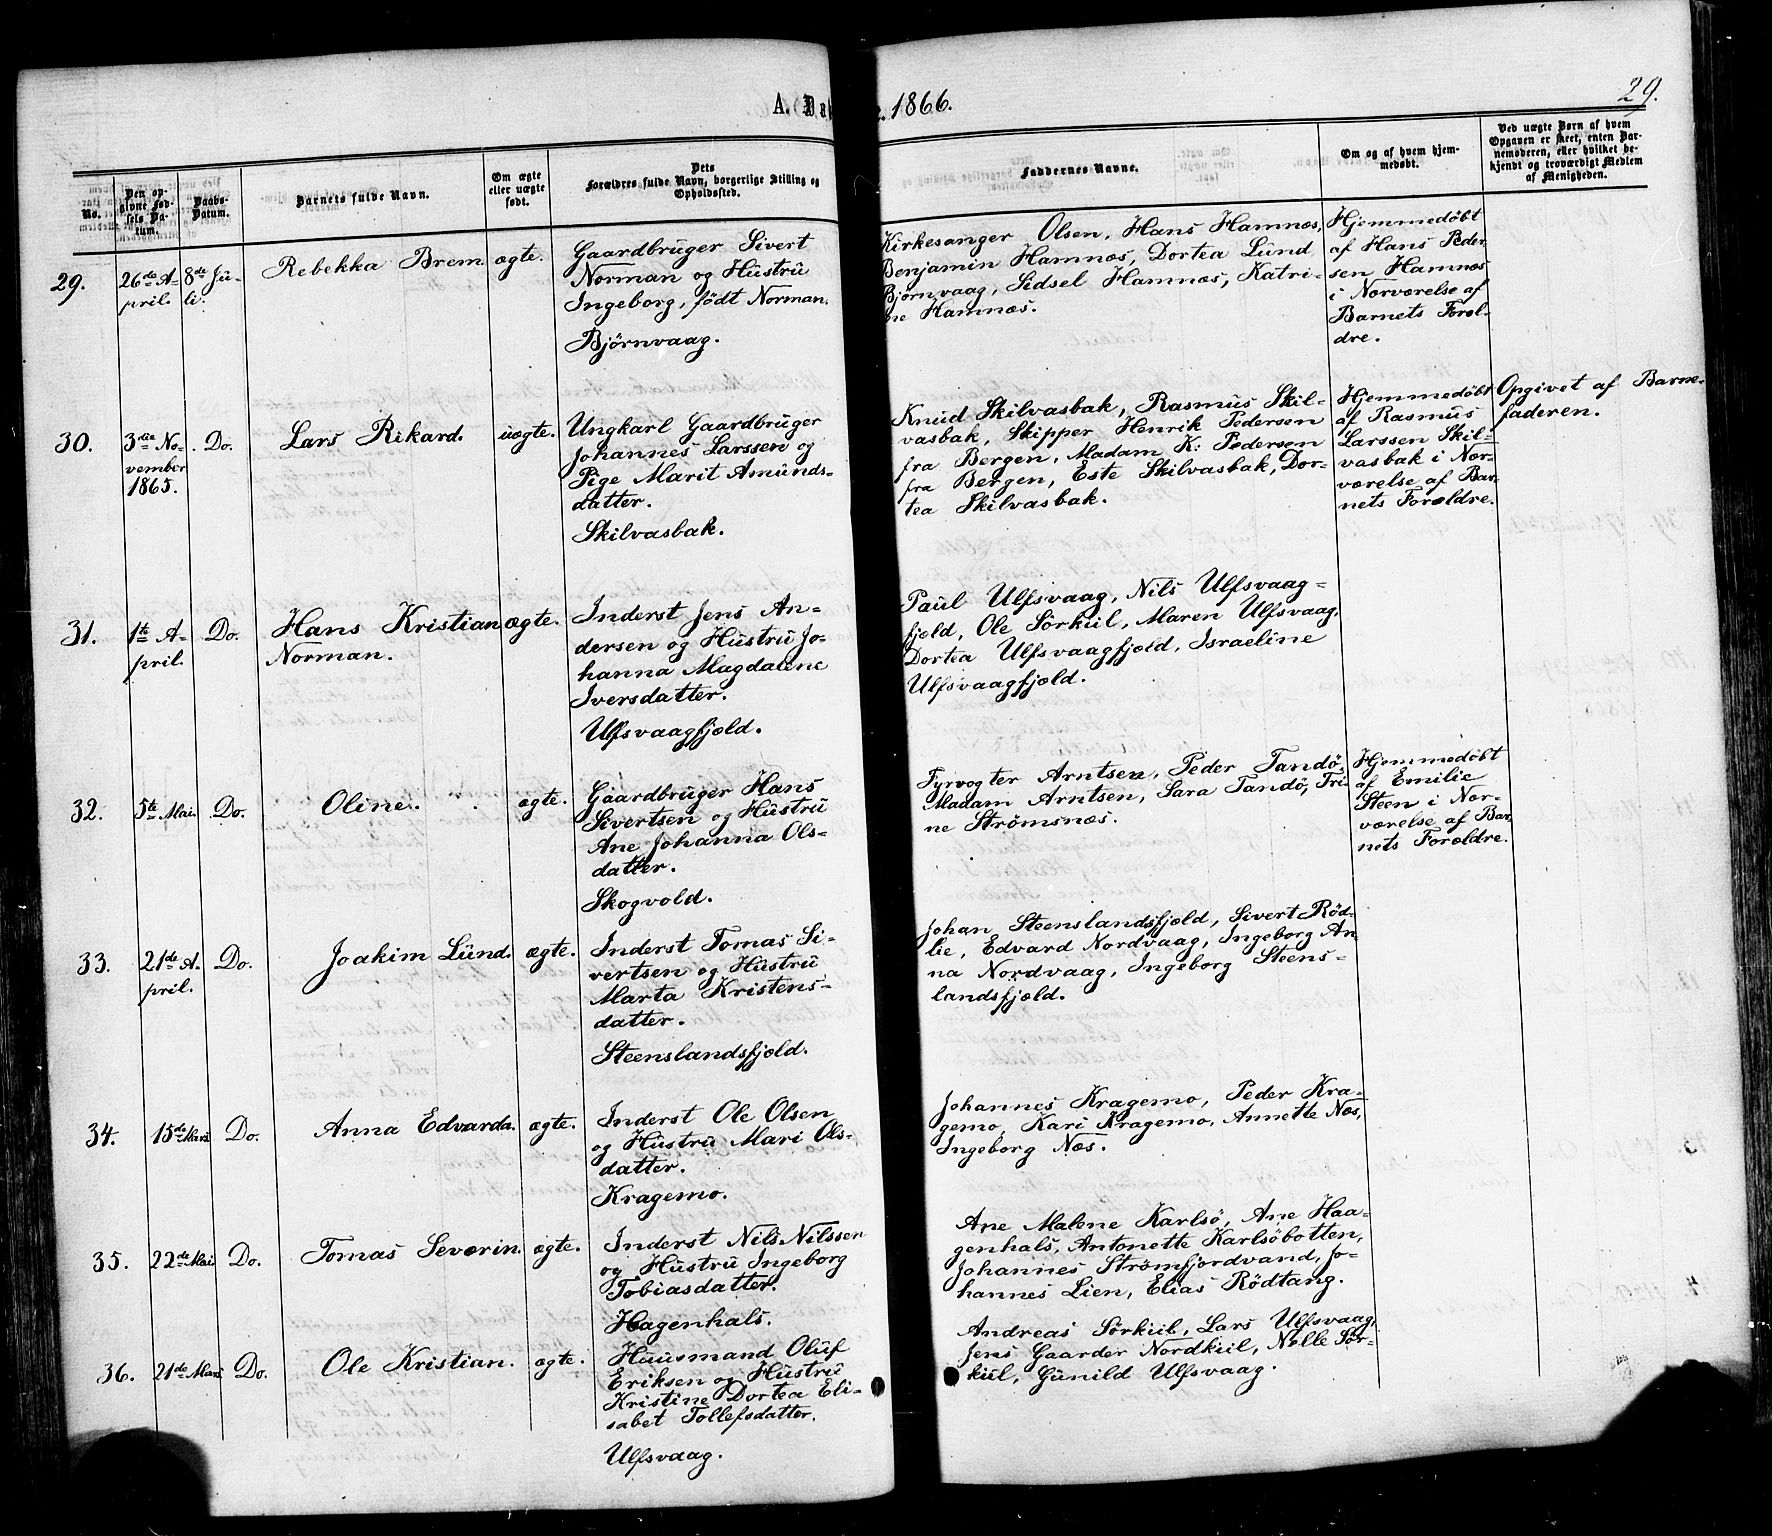 A. Dø e. 1866.
29.
No.
Den opgivne Fødsels Datum.
Daabs-Datum.
Barnets fulde Navn.
Om ægte eller uægte født.
Dets Forældres fulde Navn, borgerlige Stilling og Opholdssted.
Faddernes Navne.
Om og af hvem hjemmedøbt.
Ved uægte Børn af hvem Opgaven er skeet, enten Barnemoderen, eller hvilket bekjendt og troværdigt Medlem af Menigheden.
29.
26de A-
pril.
8de Ju-
li.
Rebekka Brem
ægte.
Gaardbruger Sivert
Norman og Hustru
Ingeborg, født Norman.
Bjørnvaag.
Kirkesanger Olsen, Hans Hamnæs,
Benjamin Hamnæs, Dortea Lund
Bjørnvaag, Sidsel Hamnæs, Katri-
ne Hamnæs.
Hjemmedøbt
af Hans Peder-
sen Hamnæs
i Nærværelse af
Barnets Foræl-
dre.
30.
3die No-
vember
1865.
Do.
Lars Rikard.
uægte.
Ungkarl Gaardbruger
Johannes Larssen og
Pige Marit Amunds-
datter.
Skilvasbak.
Knud Skilvasbak, Rasmus Skil-
vasbak, Skipper Henrik Pedersen
fra Bergen, Madam K. Pedersen
fra Bergen, Este Skilvasbak, Dor-
tea Skilvasbak.
Hjemmedøbt
af Rasmus
Larssen Skil-
vasbak i Nær-
værelse af Bar-
nets Forældre.
Opgivet af Barne-
faderen.
31.
1te A-
pril.
Do.
Hans Kristian
Norman.
ægte.
Inderst Jens An-
dersen og Hustru Jo-
hanna Magdalene
Iversdatter.
Ulfsvaagfjæld.
Paul Ulfsvaag, Nils Ulfsvaag-
fjæld, Ole Sørkiil, Maren Ulfsvaag,
Dortea Ulfsvaagfjæld, Israeline
Ulfsvaagfjæld.
32.
5te Mai.
Do.
Oline.
ægte.
Gaardbruger Hans
Sivertsen og Hustru
Ane Johanna Ols-
datter.
Skogvold.
Fyrvogter Arntsen, Peder Tandø,
Madam Arntsen, Sara Tandø, Tri-
ne Strømsnæs.
Hjemmedøbt
af Emilie
Steen i Nær-
værelse af Bar-
nets Forældre.
33.
21de A-
pril.
Do.
Joakim Lund.
ægte.
Inderst Tomas Si-
vertsen og Hustru
Marta Kristens-
datter.
Steenslandsfjæld.
Johan Steenslandsfjæld, Sivert Rød-
lie, Edvard Nordvaag, Ingeborg An-
na Nordvaag, Ingeborg Steens-
landsfjæld.
34.
15de Mai
Do.
Anna Edvarda.
ægte.
Inderst Ole Olsen
og Hustru Mari Ols-
datter.
Kragemo.
Johannes Kragemo, Peder Kra-
gemo, Kari Kragemo, Annette Næs,
Ingeborg Næs.
35.
22de Mai
Do.
Tomas Severin.
ægte.
Inderst Nils Nilssen
og Hustru Ingeborg
Tobiasdatter.
Hagenhals.
Ane Malene Karlsø, Ane Haa-
genhals, Antonette Karlsøbotten,
Johannes Strømfjordvand, Jo-
hannes Lien, Elias Rødtang.
36.
21de Mai
Do.
Ole Kristian.
ægte.
Huusmand Oluf
Eriksen og Hustru
Kristine Dortea Eli-
sabet Tollefsdatter.
Ulfsvaag.
Andreas Sørkiil, Lars Ulfsvaag,
Jens Gaarder Nordkiil, Nelle Sør-
kiil, Gunild Ulfsvaag.